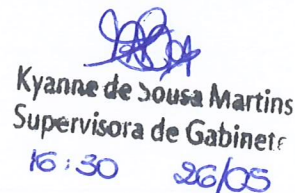 Kyanne de Sousa Martins
Supervisora de Gabinete
16:30 26/05